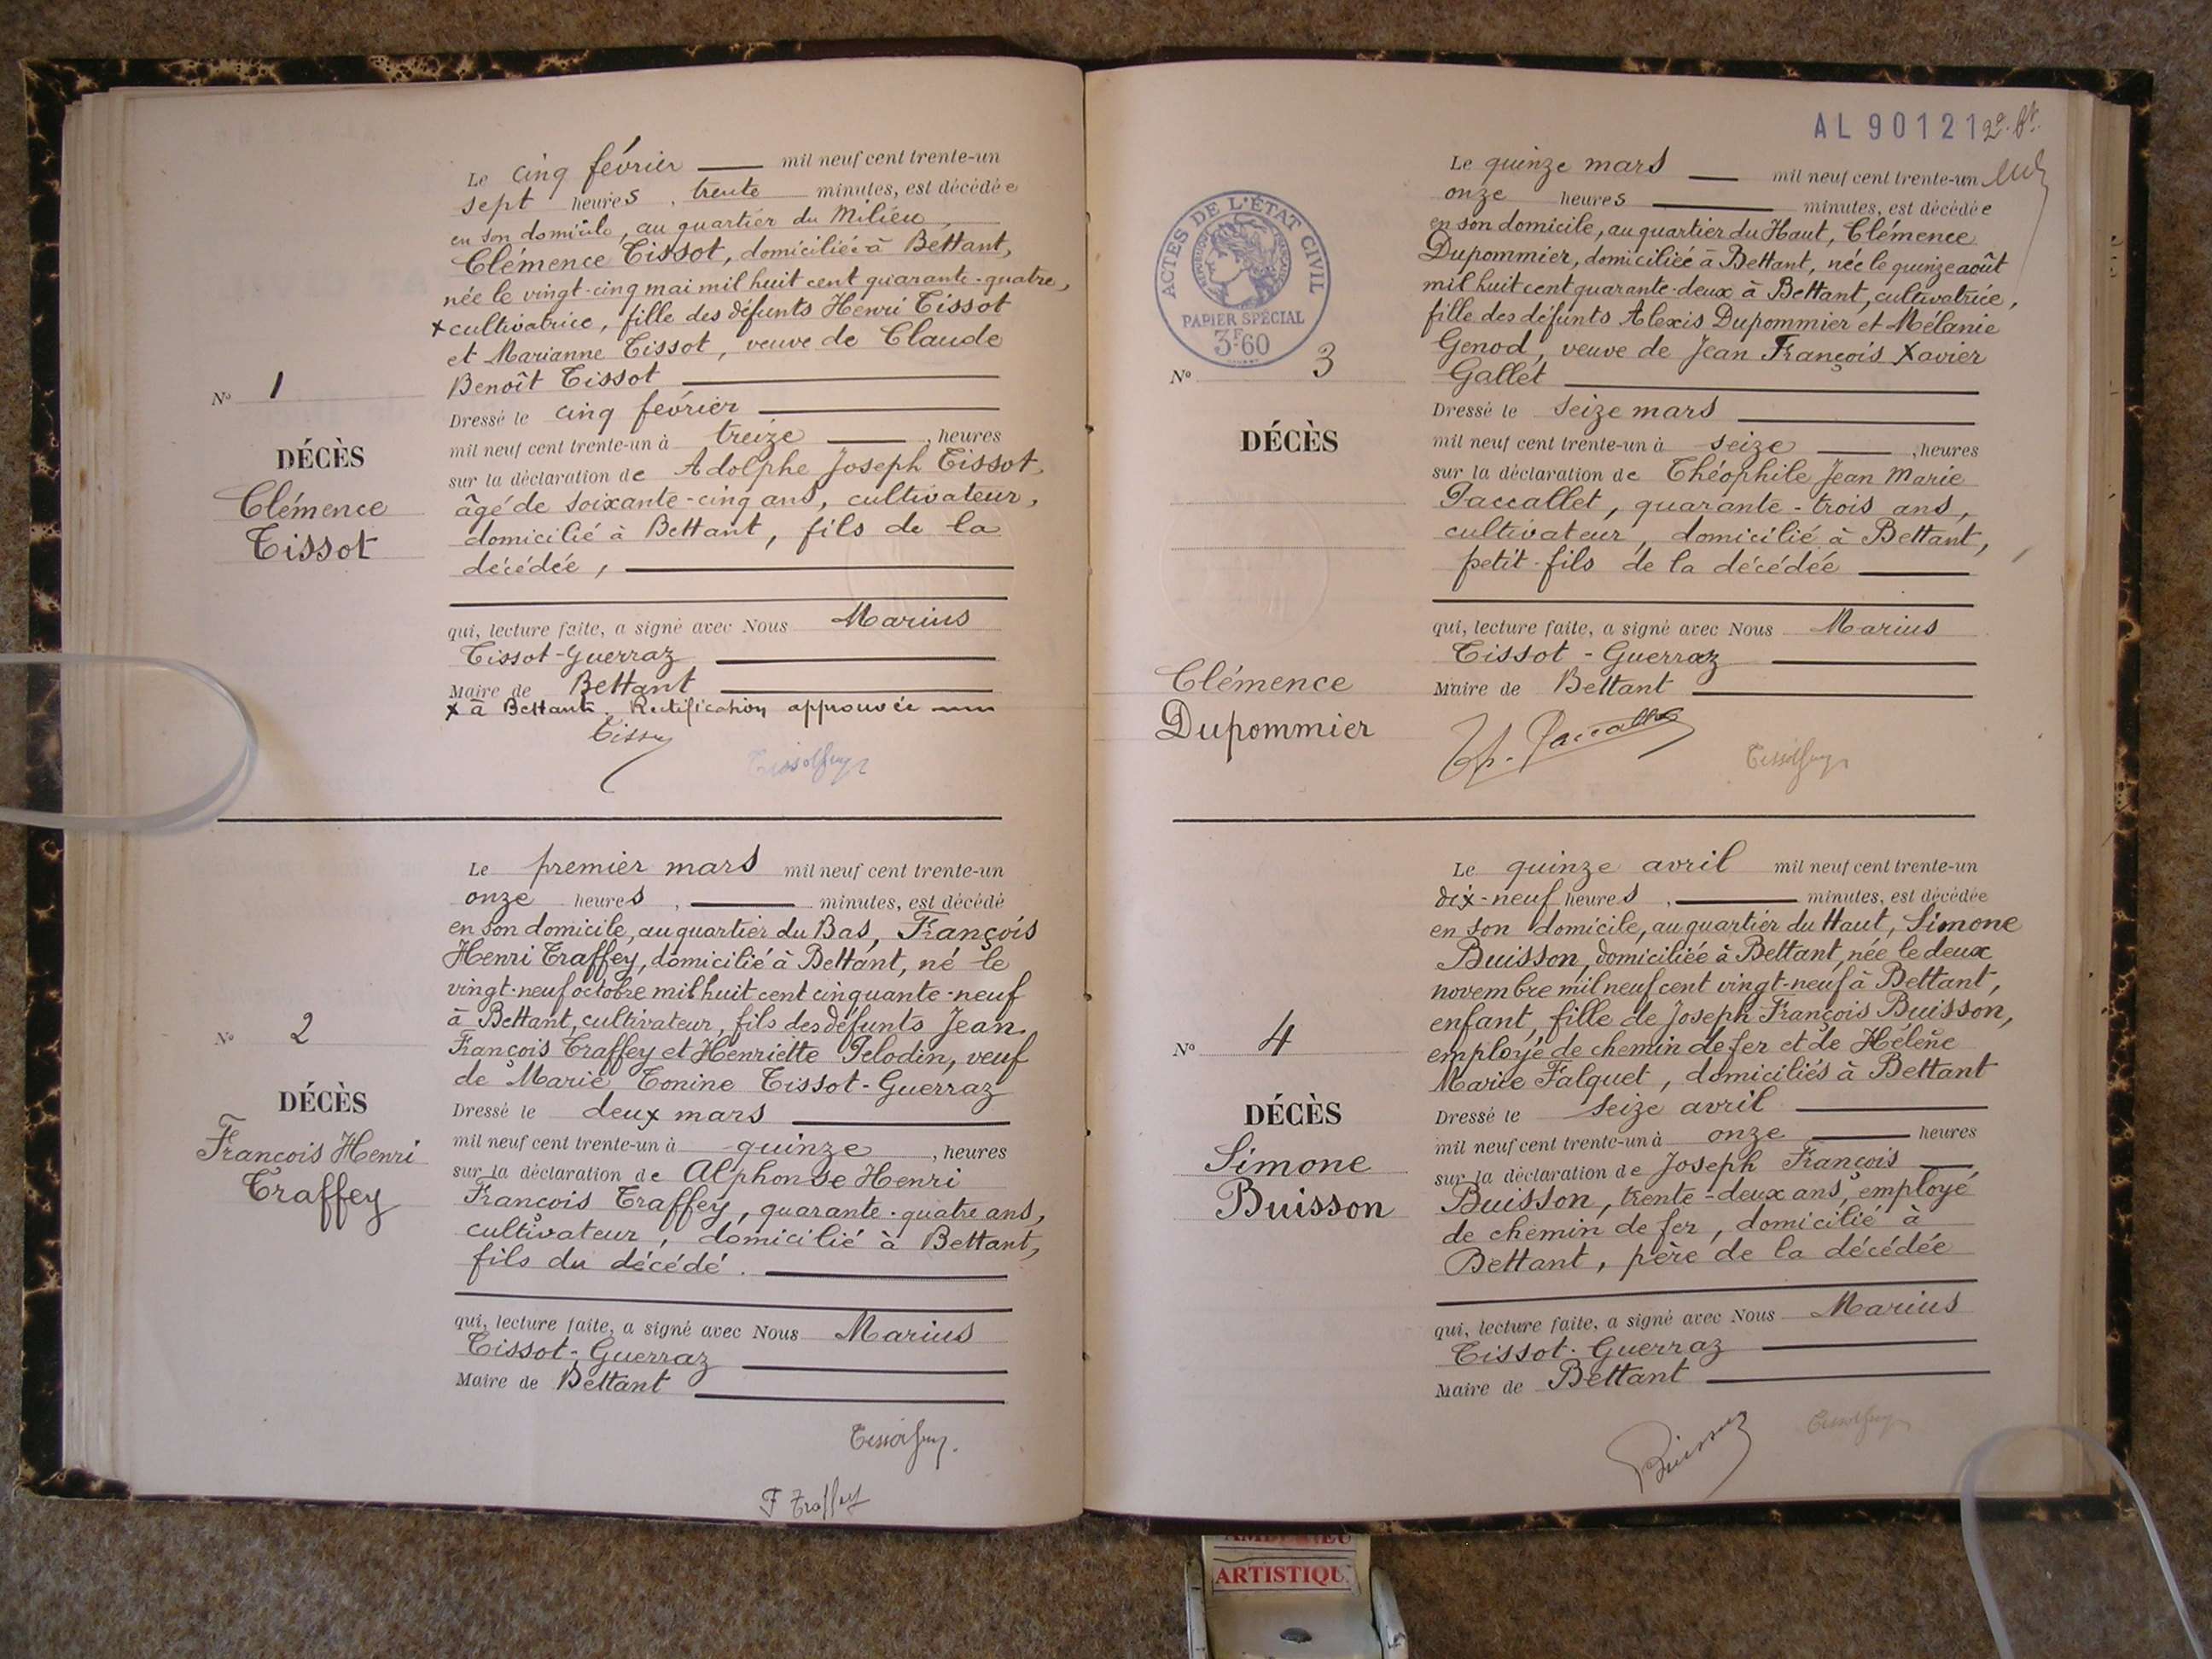 Le cinq février mil neuf cent trente-un
sept heures, trente minutes, est décédée
en son domicile, au quartier du Milieu,
Clémence Tissot, domiciliée à Bettant,
née le vingt-cinq mai mil huit cent quarante-quatre,
x cultivatrice, fille des défunts Henri Tissot
et Marianne Tissot, veuve de Claude
Benoît Tissot
N° 1
DÉCÈS
Clémence
Tissot
Dressé le cinq février
mil neuf cent trente-un à treize, heures
sur la déclaration de Adolphe Joseph Tissot,
âgé de soixante-cinq ans, cultivateur,
domicilié à Bettant, fils de la
décédée,
qui, lecture faite, a signé avec Nous Marius
Tissot-Guerraz
Maire de Bettant
x à Bettant. Rectification approuvée
Le premier mars mil neuf cent trente-un
onze heures, minutes, est décédé
en son domicile, au quartier du Bas, François
Henri Traffey, domicilié à Bettant, né le
vingt-neuf octobre mil huit cent cinquante-neuf
à Bettant, cultivateur, fils des défunts Jean
François Traffey et Henriette Pelodin, veuf
de Marie Tonine Tissot-Guerraz
N° 2
DÉCÈS
François Henri
Traffey
Dressé le deux mars
mil neuf cent trente-un à quinze, heures
sur la déclaration de Alphonse Henri
François Traffey, quarante-quatre ans,
cultivateur, domicilié à Bettant,
fils du décédé.
qui, lecture faite, a signé avec Nous Marius
Tissot-Guerraz
Maire de Bettant
F Traffey
AL 90121
ACTES DE L'ÉTAT CIVIL
RÉPUBLIQUE FRANÇAISE
PAPIER SPÉCIAL
3F60
Le quinze mars mil neuf cent trente-un
onze heures minutes, est décédée
en son domicile, au quartier du Haut, Clémence
Dupommier, domiciliée à Bettant, née le quinze août
mil huit cent quarante-deux à Bettant, cultivatrice,
fille des défunts Alexis Dupommier et Mélanie
Genod, veuve de Jean François Xavier
Gallet
N° 3
DÉCÈS
Clémence
Dupommier
Dressé le seize mars
mil neuf cent trente-un à seize, heures
sur la déclaration de Théophile Jean Marie
Paccallet, quarante-trois ans,
cultivateur, domicilié à Bettant,
petit-fils de la décédée
qui, lecture faite, a signé avec Nous Marius
Tissot-Guerraz
Maire de Bettant
Th. Paccallet
Le quinze avril mil neuf cent trente-un
dix-neuf heures, minutes, est décédée
en son domicile, au quartier du Haut, Simone
Buisson, domiciliée à Bettant, née le deux
novembre mil neuf cent vingt-neuf à Bettant,
enfant, fille de Joseph François Buisson,
employé de chemin de fer et de Hélène
Marie Falquet, domiciliés à Bettant
N° 4
DÉCÈS
Simone
Buisson
Dressé le seize avril
mil neuf cent trente-un à onze heures
sur la déclaration de Joseph François
Buisson, trente-deux ans, employé
de chemin de fer, domicilié à
Bettant, père de la décédée
qui, lecture faite, a signé avec Nous Marius
Tissot-Guerraz
Maire de Bettant
Buisson
ARTISTIQU